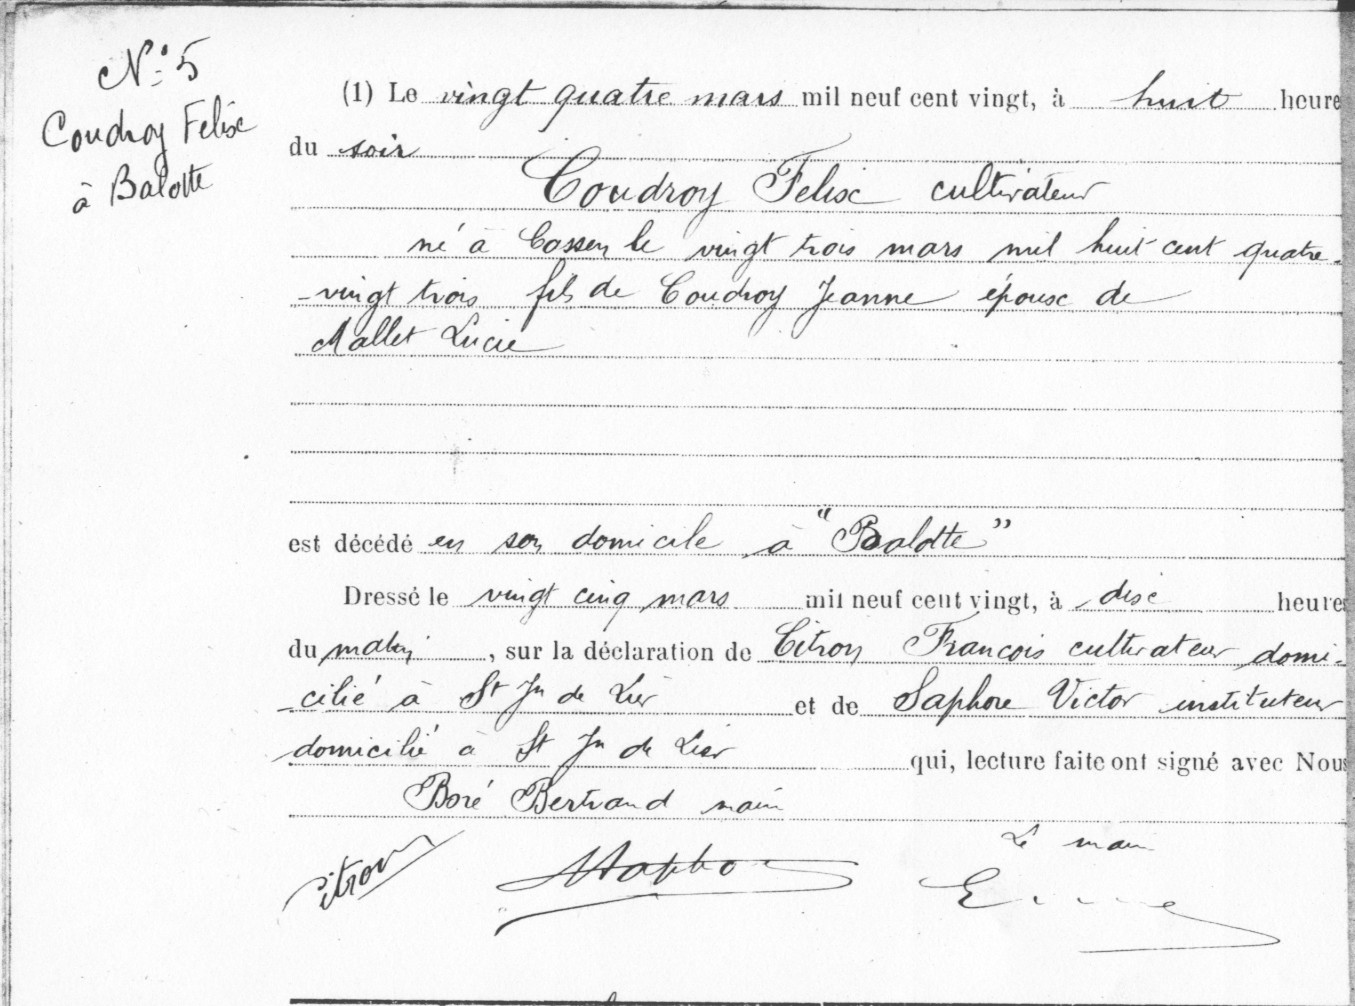 N° 5
Coudroy Felix
à Balotte
(1) Le vingt quatre mars mil neuf cent vingt, à huit heure
du soir
Coudroy Felix cultivateur
né à Cassen le vingt trois mars mil huit cent quatre-
-vingt trois fils de Coudroy Jeanne époux de
Mallet Lucie
est décédé en son domicile à "Balotte"
Dressé le vingt cinq mars mil neuf cent vingt, à dix heures
du matin, sur la déclaration de Citron Francois cultivateur domi-
-cilié à St Jn de Lier et de Saphore Victor instituteur
domicilié à St Jn de Lier qui, lecture faite ont signé avec Nous
Boré Bertrand maire
Le maire
Citron